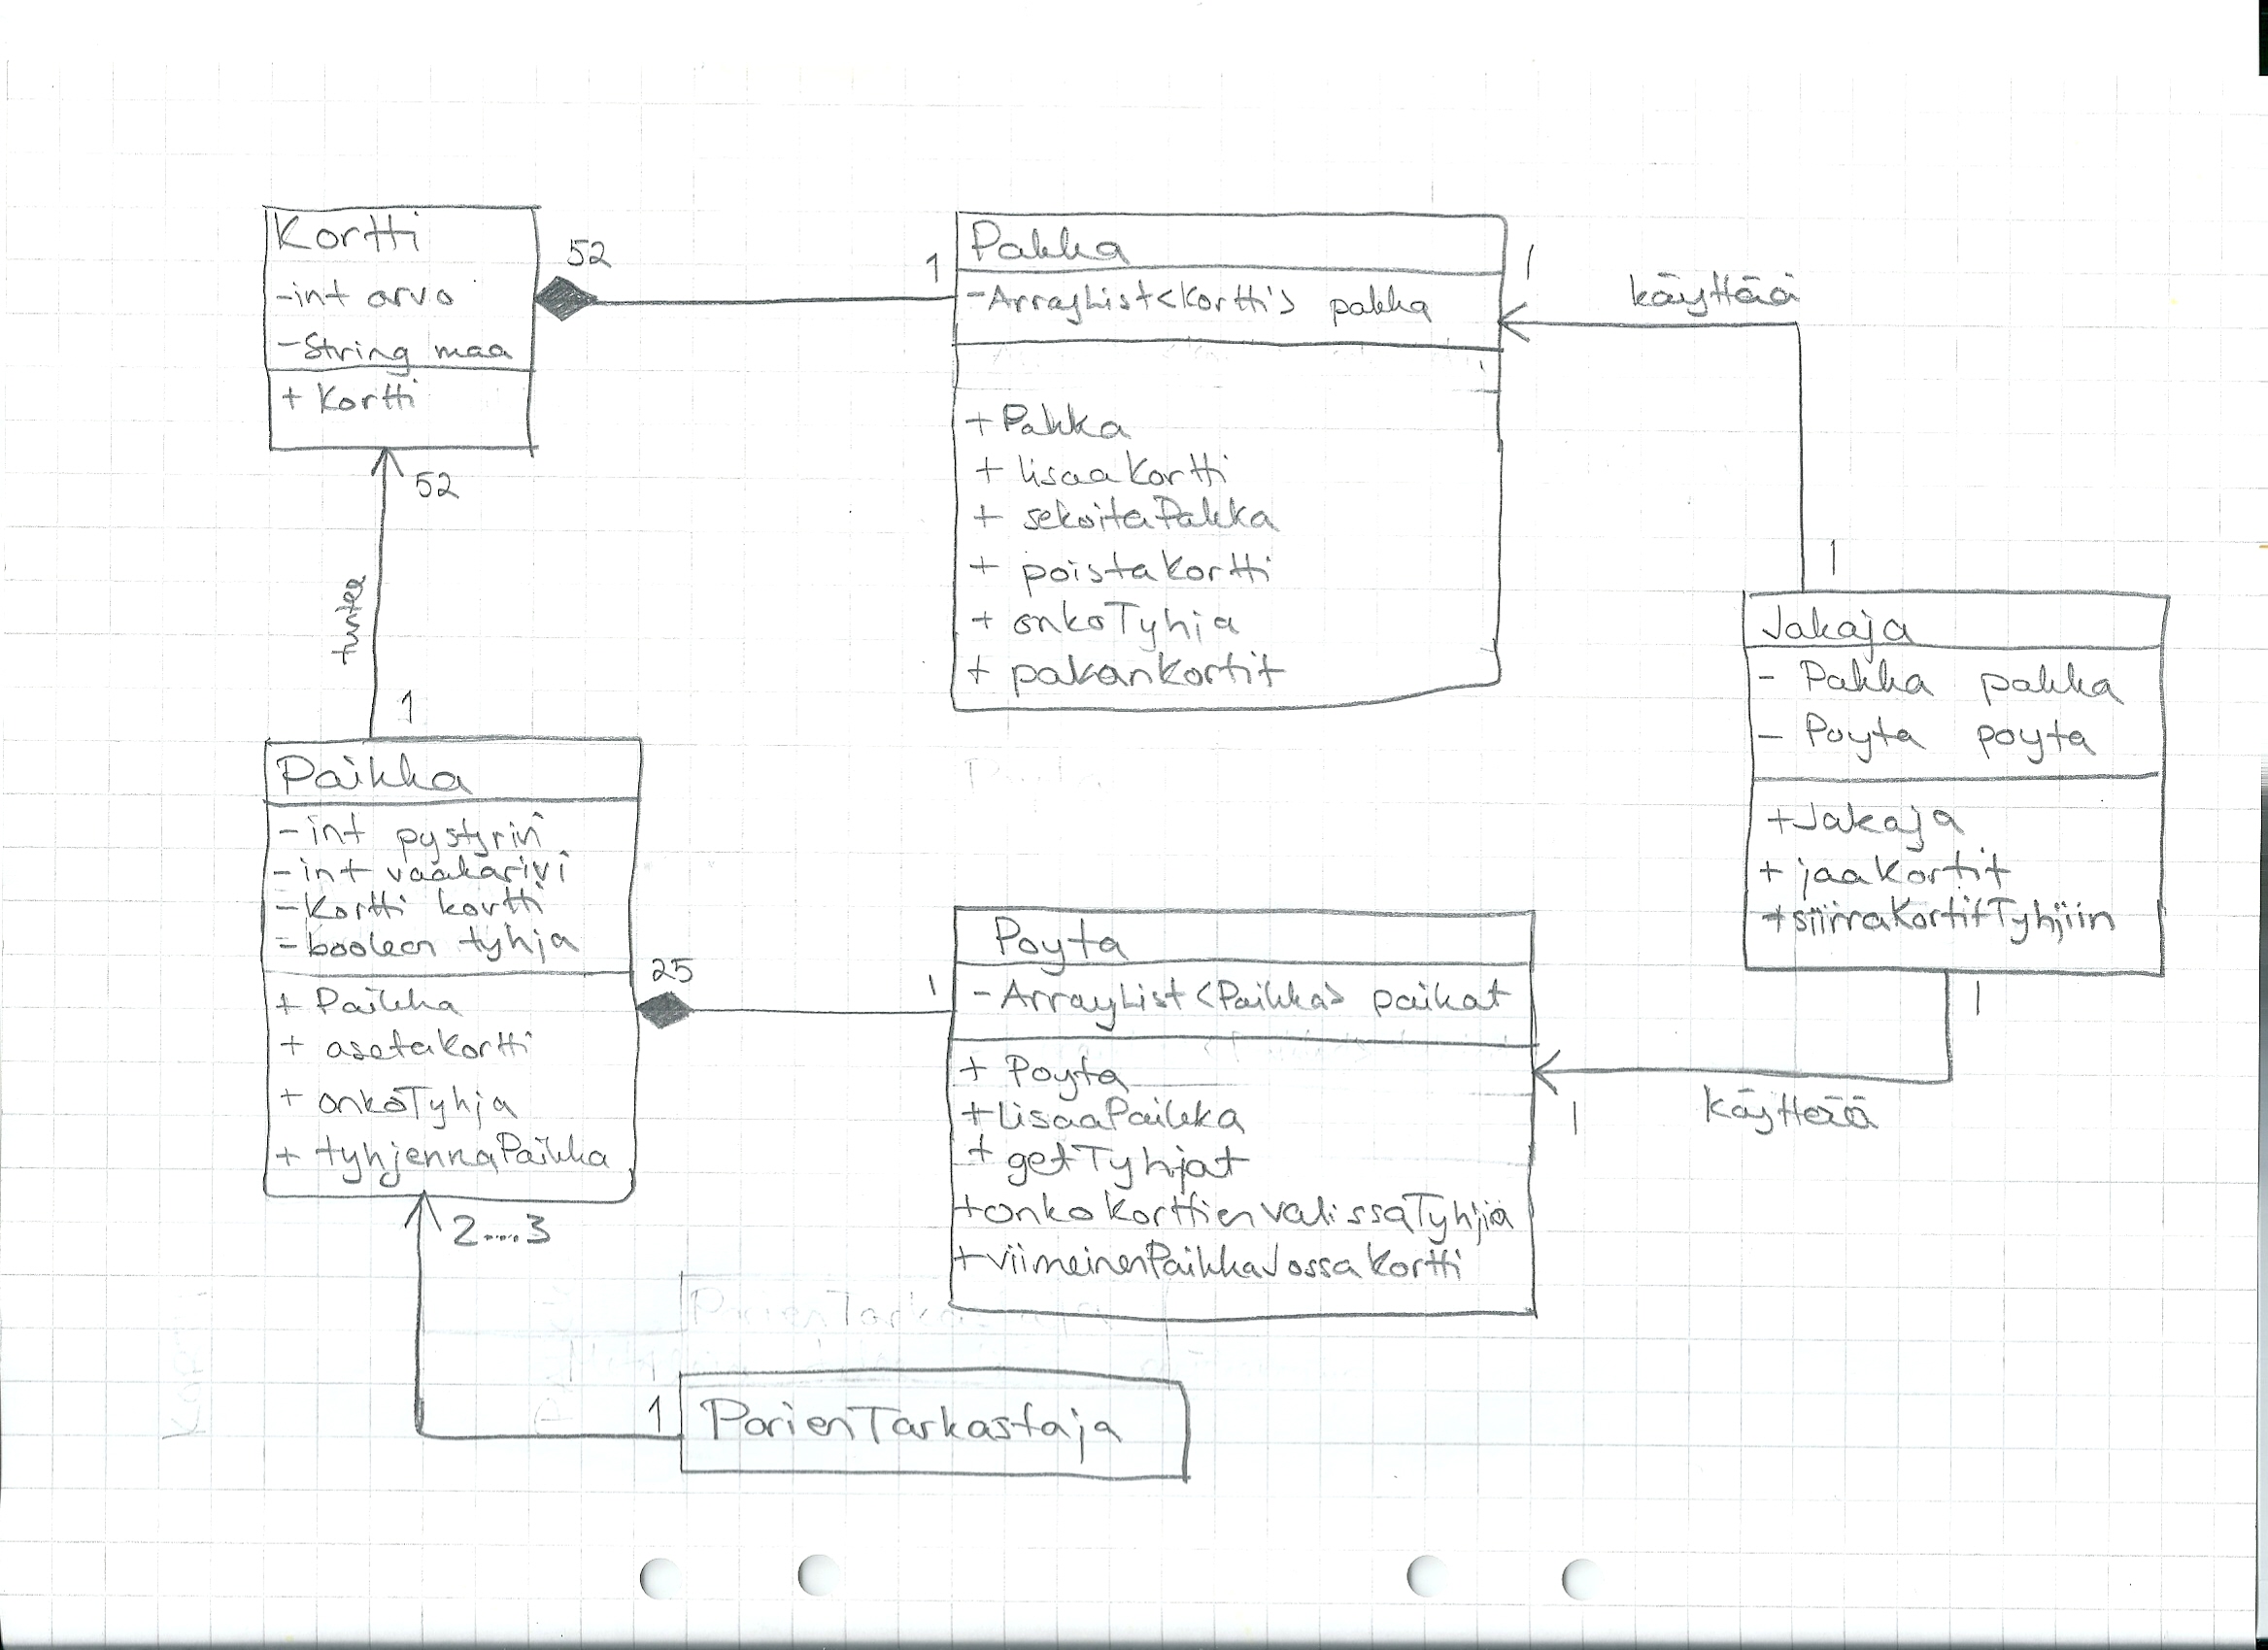 Kortti
-int arvo
-String maa
+ Kortti
52
1
Pakka
-ArrayList<Kortti> pakka
+ Pakka
+ lisaaKortti
+ sekoitaPakka
+ poistaKortti
+ onkoTyhja
+ pakanKortit
1
käyttää
1
Jakaja
- Pakka pakka
- Poyta poyta
+Jakaja
+ jaaKortit
+siirraKortitTyhjiin
1
52
tuntee
1
Paikka
-int pystyrivi
-int vaakarivi
-Kortti kortti
-boolean tyhja
+ Paikka
+ asetaKortti
+ onkoTyhja
+ tyhjennaPaikka
25
1
Poyta
- ArrayList<Paikka> paikat
+ Poyta
+lisaaPaikka
+ getTyhjat
+onkoKorttienValissaTyhjia
+viimeinenPaikkaJossaKortti
1
käyttää
2....3
1
ParienTarkastaja